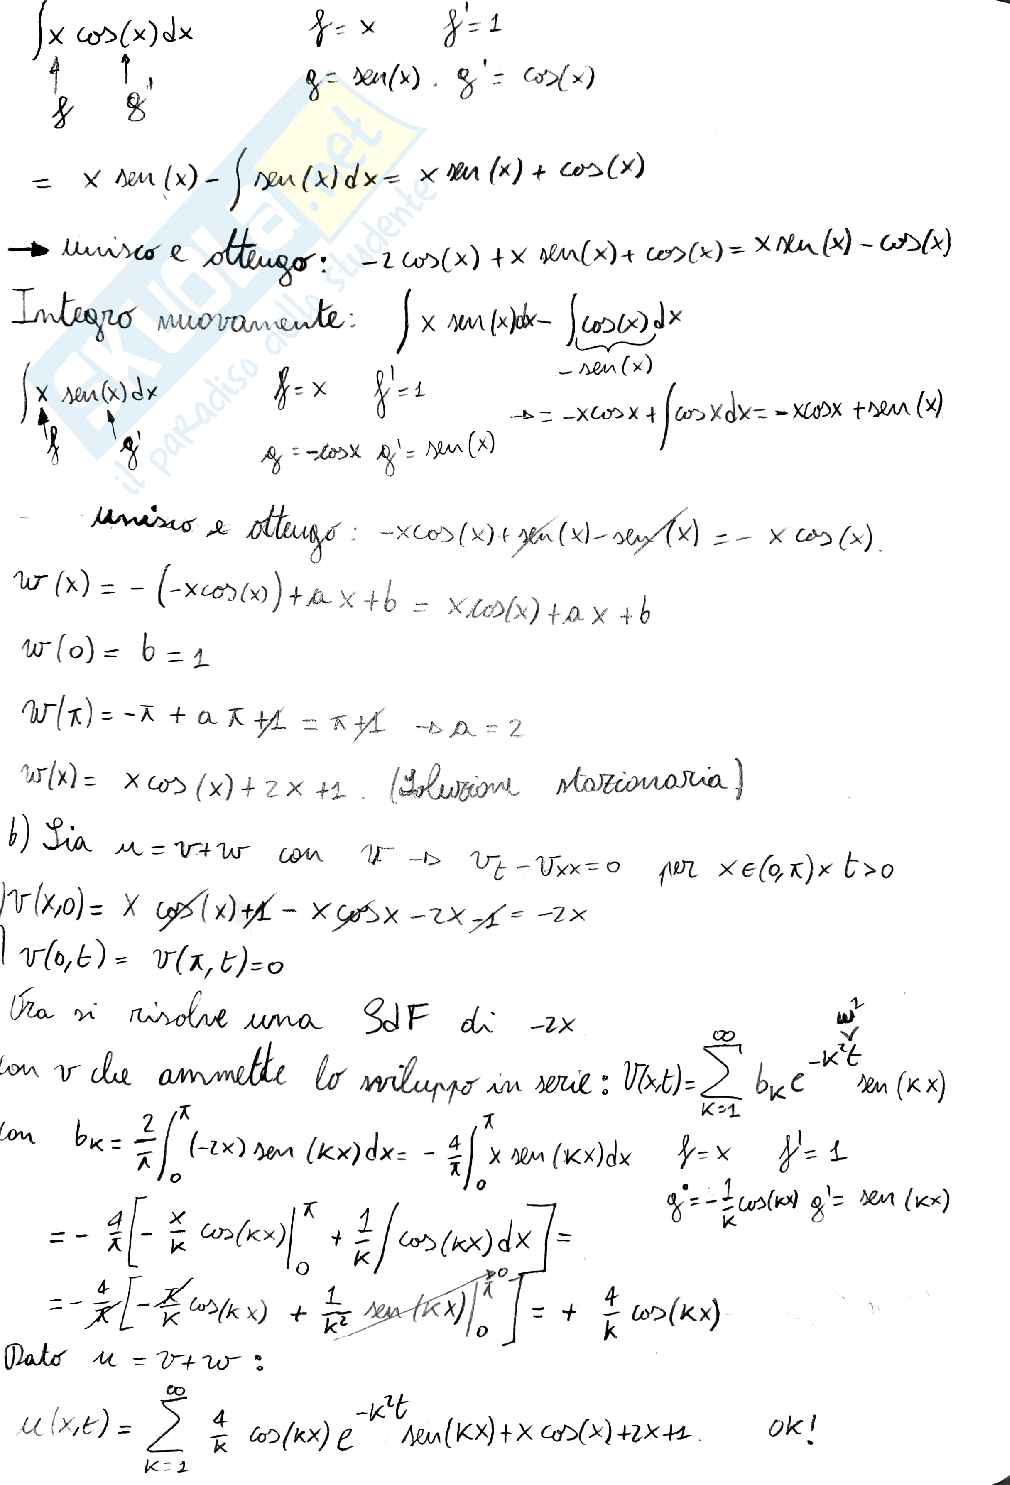 ∫x cos(x)dx    f = x    f' = 1
f    g'    g = sen(x) . g' = cos(x)
= x sen(x) - ∫ sen(x)dx = x sen(x) + cos(x)
→ unisco e ottengo: -2cos(x) + x sen(x) + cos(x) = x sen(x) - cos(x)
Integro nuovamente: ∫ x sen(x)dx - ∫cos(x)dx
-sen(x)
∫x sen(x)dx    f = x    f' = 1    → = -xcosx + ∫cosxdx = -xcosx + sen(x)
f    g'    g = -cosx g' = sen(x)
unisco e ottengo: -xcos(x) + sen(x) - sen(x) = - x cos(x).
w(x) = - (-xcos(x)) + ax + b = xcos(x) + ax + b
w(0) = b = 1
w(π) = -π + aπ + 1 = π + 1 → a = 2
w(x) = x cos(x) + 2x + 1. (Soluzione stazionaria)
b) Sia u = v+w con v → v_t - v_xx = 0 per x∈(0,π) x t>0
v(x,0) = x cos(x) + 1 - x cosx - 2x - 1 = -2x
v(0,t) = v(π,t) = 0
Ora si risolve una SdF di -2x
con v che ammette lo sviluppo in serie: V(x,t) = ∑_{k=1}^{∞} b_k e^{-k²t} sen(kx)
w²
con b_k = 2/π ∫_0^π (-2x) sen(kx)dx = - 4/π ∫_0^π x sen(kx)dx    f = x    f' = 1
g = -1/k cos(kx) g' = sen(kx)
= - 4/π [- x/k cos(kx)|_0^π + 1/k ∫cos(kx)dx] =
= - 4/π [- π/k cos(kx) + 1/k² sen(kx)|_0^π →0] = + 4/k cos(kx)
Dato u = v+w :
u(x,t) = ∑_{k=1}^{∞} 4/k cos(kx) e^{-k²t} sen(kx) + x cos(x) + 2x + 1.    OK!
SKUOLA.net
il paradiso dello studente